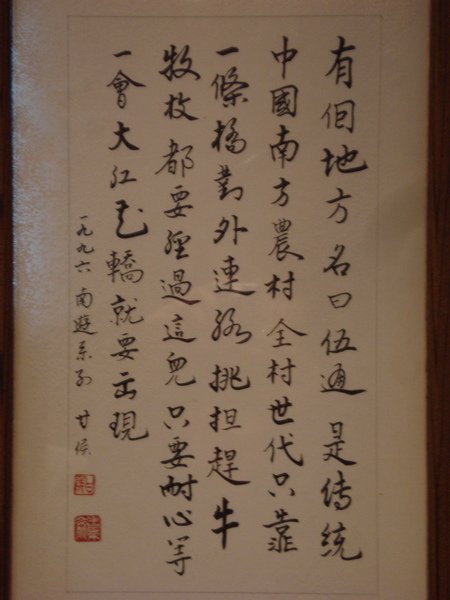 有個地方名曰伍通是傳統
中國南方農村全村世代只靠
一條橋對外連絡挑担趕牛
牧都要經過這兒只要耐心等
一會大紅花轎就要出現
一九九六 南遊系列 甘侯